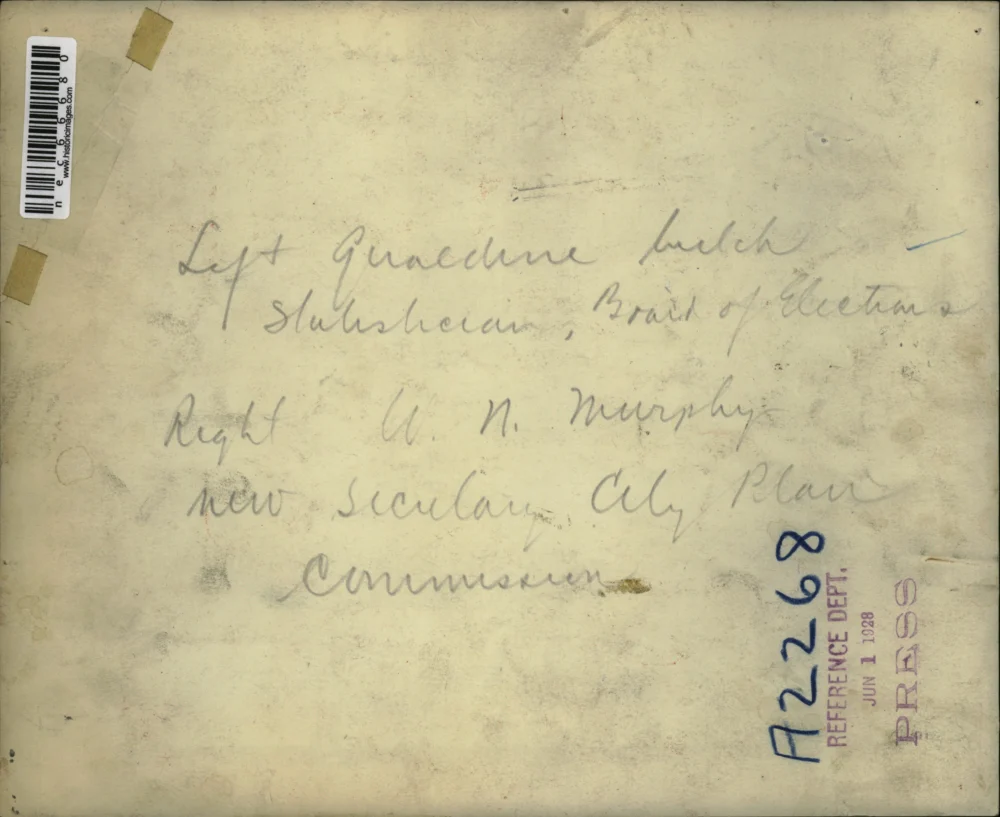 Left Geraldine Welch
Statistician, Board of Elections
Right W. N. Murphy
new Secretary City Plan
Commission
A2268
REFERENCE DEPT.
JUN 1 1928
PRESS
www.historicimages.com
nec66680